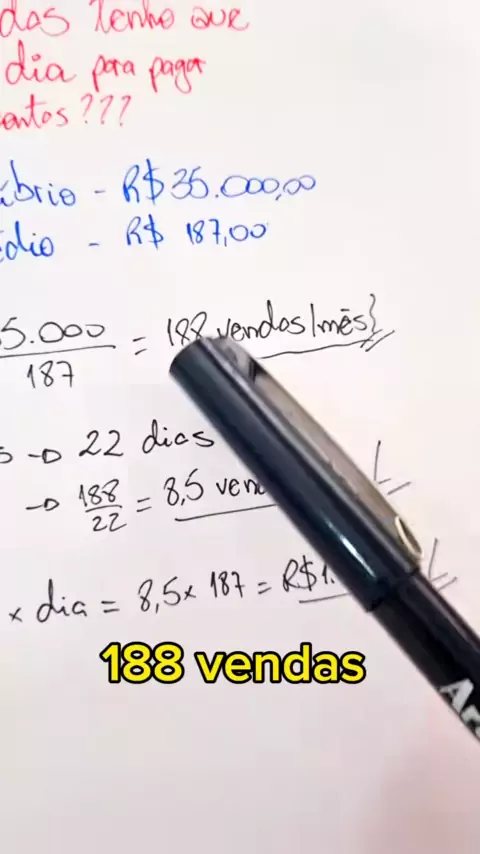 das tenho que
dia para pagar
entos???
íbrio - R$35.000,00
édio - R$ 187,00
5.000
187
= 188 vendas/mês}
s → 22 dias
→ 188
22
= 8,5 ven
x dia = 8,5x 187 = R$1.
188 vendas
Ar